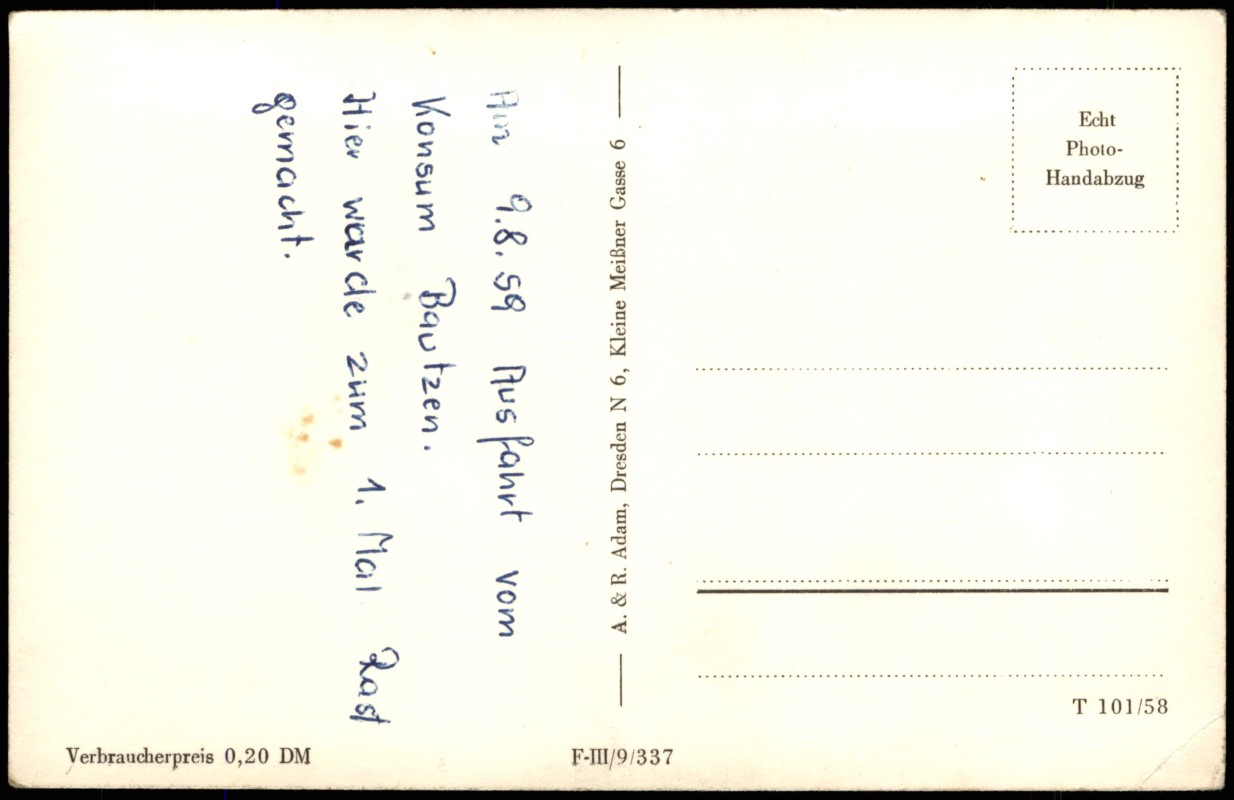 Am 9.8.59 Ausfahrt vom
Konsum Bautzen.
Hier warde zum 1. Mal Rast
gemacht.
A. & R. Adam, Dresden N 6, Kleine Meißner Gasse 6
Echt
Photo-
Handabzug
T 101/58
Verbraucherpreis 0,20 DM
F-III/9/337